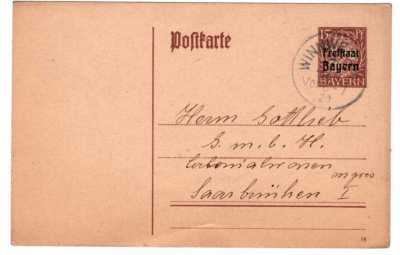 Postkarte
15 Pf
Freistaat
Bayern
BAYERN
Herrn Gottlieb
G. m. b. H.
Colonialwaren
en gros
Saarbrücken I